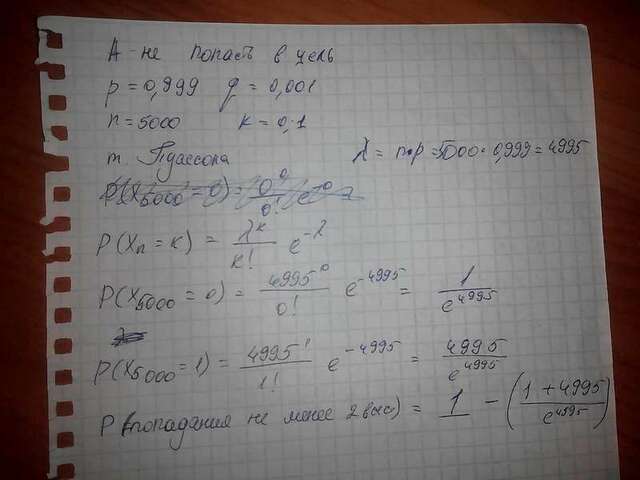 A - не попасть в цель
p = 0,999 q = 0,001
n = 5000 k = 0,1
т. Пуассона λ = n·p = 5000 · 0,999 = 4995
P(X₅₀₀₀ = 0) = 0⁰/0! e⁻⁰
P(Xₙ = k) = λᵏ/k! e^-λ
P(X₅₀₀₀ = 0) = 4995⁰/0! e^-4995 = 1/e^4995
P(X₅₀₀₀ = 1) = 4995¹/1! e^-4995 = 4995/e^4995
P(попадания не менее 2 выс) = 1 - (1 + 4995/e^4995)